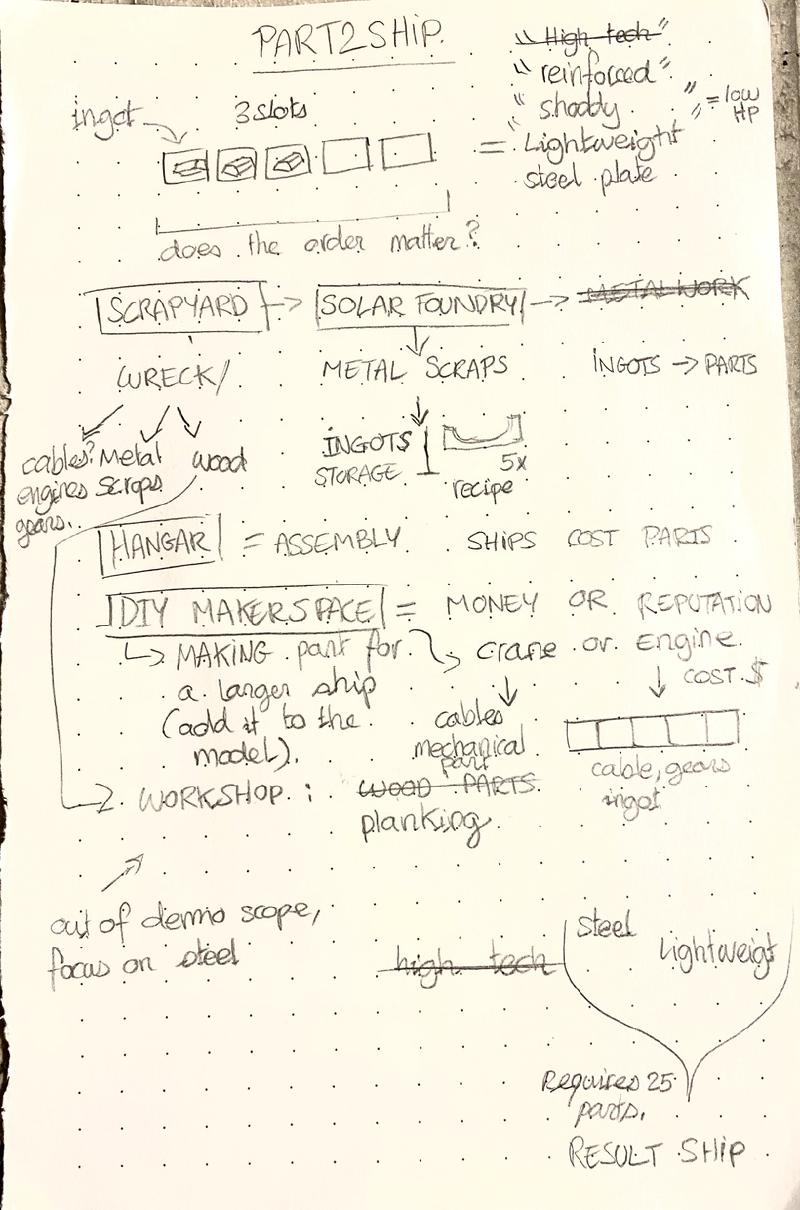 PART2SHIP.
"High tech"
"reinforced"
"shoddy" " = low HP
ingot
3 slots
= Lightweight
steel plate
does the order matter?
SCRAPYARD -> SOLAR FOUNDRY -> METALWORK
WRECK/
METAL SCRAPS
INGOTS -> PARTS
cables? Metal wood
engines scraps
gears.
INGOTS
STORAGE
5x
recipe
HANGAR = ASSEMBLY. SHIPS COST PARTS
DIY MAKERSPACE = MONEY OR REPUTATION
MAKING part for
a larger ship
(add it to the
model).
crane or Engine.
COST $
cables
mechanical
part
cable, gears
ingot
WORKSHOP : WOOD PARTS
planking
out of demo scope,
focus on steel
high tech
steel
Lightweigt
Requires 25
parts.
RESULT SHIP